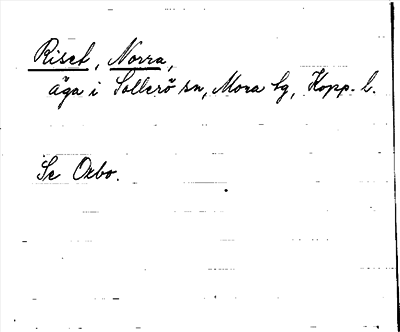 Riset, Norra,
äga i Sollerö sn, Mora tg, Kopp. l.
Se Oxbo.